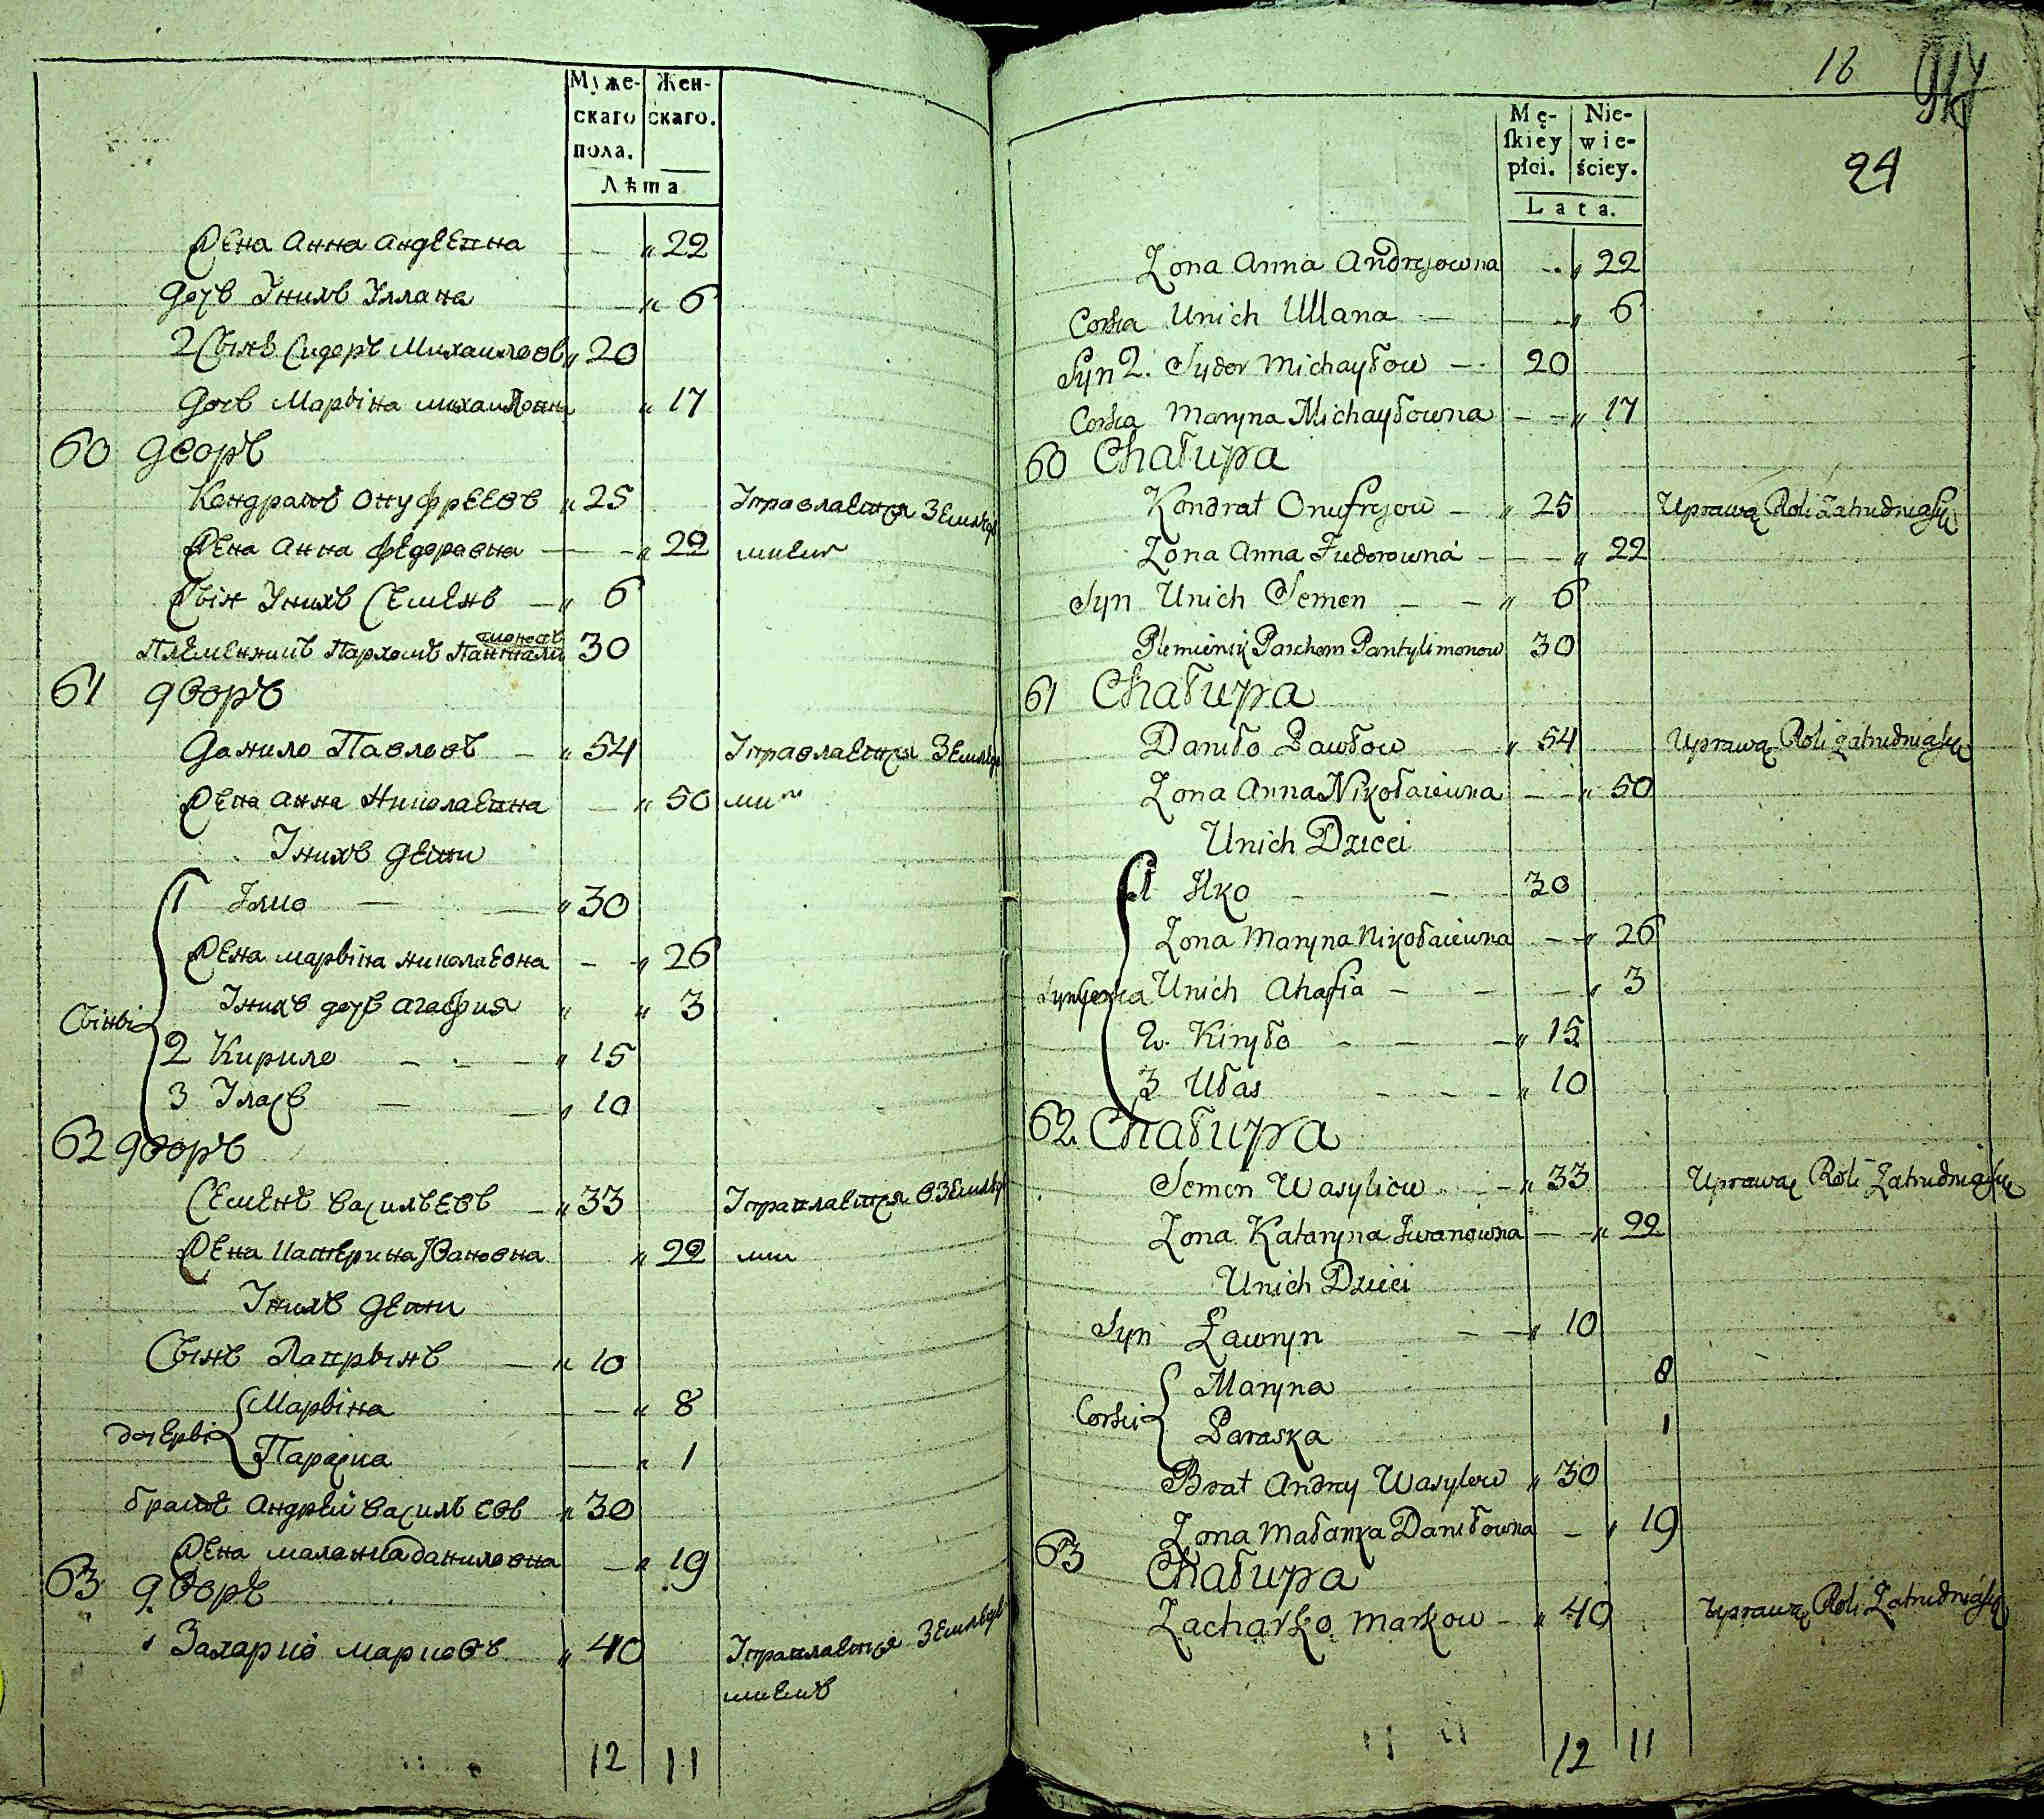 Муже-
скаго
пола.
Жен-
скаго.
Лѣта
Жена Анна Андеевна " 22
Дочь Уних Уляна " 6
2 Сынъ Сидеръ Михаиловъ " 20
Дочь Марына Михаиловна " 17
60 дворъ
Кондратъ Онуфреевъ " 25
Жена Анна Федоровна " 22
Сын Унихъ Семенъ " 6
Племенникъ Пархомъ Пантялимоновъ 30
61 дворъ
Данило Павловъ " 54
Жена Анна Николаевна " 50
Унихъ дети
1 Илко " 30
Жена Марына Николаевна " 26
Унихъ дочь Агафия " " 3
Сыны
2 Кирило " 15
3 Уласъ " 10
62 дворъ
Семенъ Васильевъ " 33
Жена Катерина Ивановна " 22
Унихъ дети
Сынъ Лаврынъ " 10
Марына " 8
дочеры
Параска " 1
братъ Андрей Васильевъ " 30
Жена Маланка Даниловна " 19
63 дворъ
Захарко Марковъ " 40
12 11
18
24
Mę-
ſkiey
płci.
Nie-
wie-
ściey.
Lata.
Zona Anna Andrejowna " 22
Corka Unich Ullana " 6
Syn 2. Sydor Michayłow 20
Corka Maryna Michayłowna " 17
60 Chałupa
Kondrat Onufrejow " 25 Uprawą Roli Zatrudnia się
Zona Anna Fudorowna " 22
Syn Unich Semen " 6
Plemienik Parchom Pantylimonow 30
61 Chałupa
Daniło Pawłow " 54 Uprawą Roli zatrudnia się
Zona Anna Nikołaiewna " 50
Unich Dzieci
1 Ilko 30
Zona Maryna Nikołaiewna " 26
Corka Unich Ahafia " 3
2. Kiryło " 15
3 Ułas " 10
62. Chałupa
Semen Wasyliew " 33 Uprawą Roli Zatrudnia się
Zona Kataryna Iwanowna " 22
Unich Dzieci
Syn Ławryn " 10
Maryna 8
Corki
Paraska 1
Brat Andrey Wasylew " 30
Zona Małanka Daniłowna " 19
63 Chałupa
Zacharko Markow " 40 Uprawą Roli Zatrudnia się
12 11